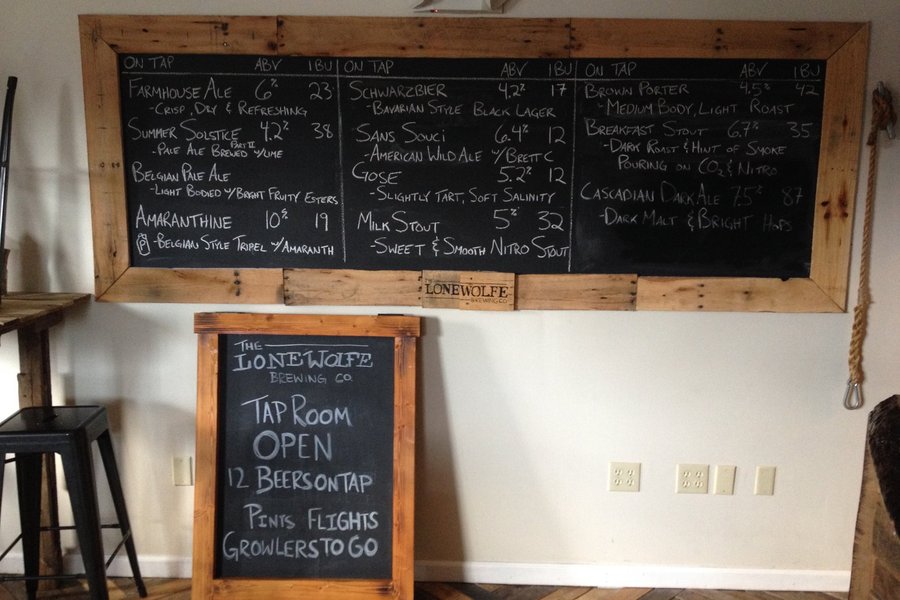 ON TAP ABV IBU
FARMHOUSE ALE 6% 23
- CRISP, DRY & REFRESHING
SUMMER SOLSTICE 4.2% 38
PART II
- PALE ALE BREWED W/LIME
BELGIAN PALE ALE
- LIGHT BODIED W/BRIGHT FRUITY ESTERS
AMARANTHINE 10% 19
P - BELGIAN STYLE TRIPEL W/AMARANTH
ON TAP ABV IBU
SCHWARZBIER 4.2% 17
- BAVARIAN STYLE BLACK LAGER
SANS SOUCI 6.4% 12
- AMERICAN WILD ALE W/BRETT C
GOSE 5.2% 12
- SLIGHTLY TART, SOFT SALINITY
MILK STOUT 5% 32
- SWEET & SMOOTH NITRO STOUT
ON TAP ABV IBU
BROWN PORTER 4.5% 42
- MEDIUM BODY, LIGHT ROAST
BREAKFAST STOUT 6.7% 35
- DARK ROAST & HINT OF SMOKE
POURING ON CO2 & NITRO
CASCADIAN DARK ALE 7.5% 87
- DARK MALT & BRIGHT HOPS
THE
LONEWOLFE
BREWING CO.
THE
LONEWOLFE
BREWING CO.
TAP ROOM
OPEN
12 BEERS ON TAP
PINTS FLIGHTS
GROWLERS TO GO